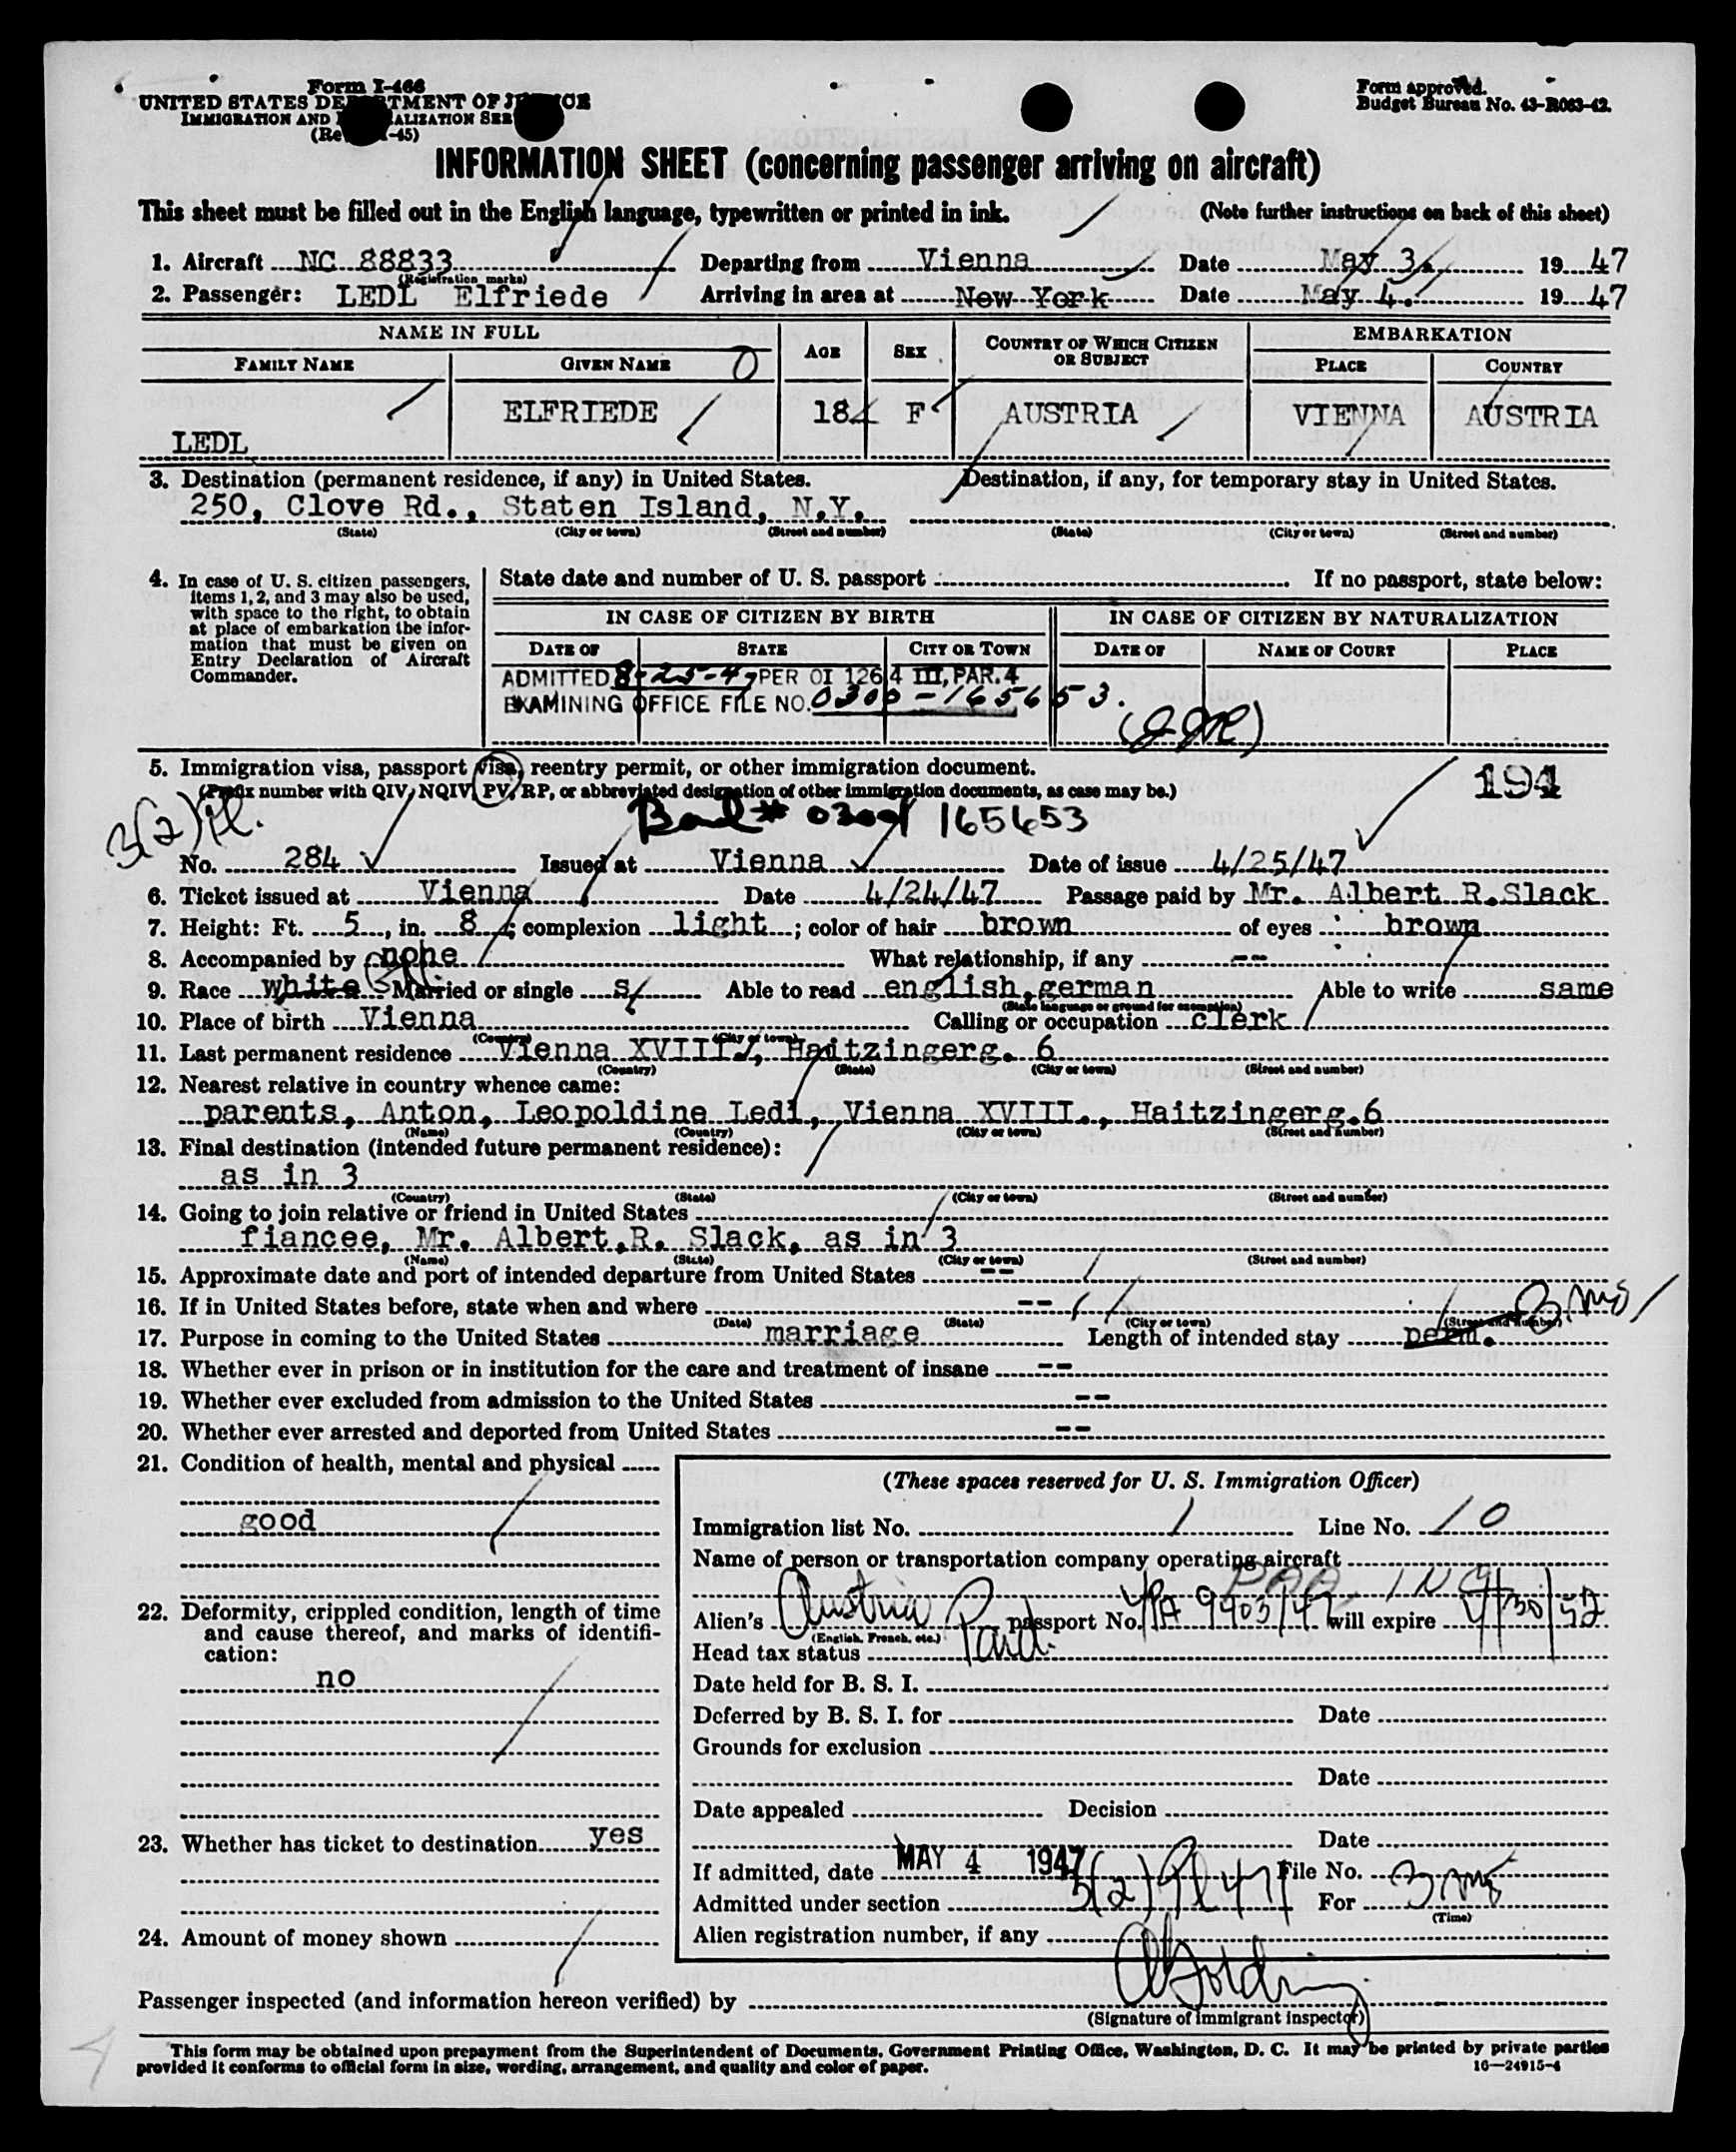 Form I-466
UNITED STATES DEPARTMENT OF JUSTICE
IMMIGRATION AND NATURALIZATION SER
(Re -45)
Form approved.
Budget Bureau No. 43-R063-42.
INFORMATION SHEET (concerning passenger arriving on aircraft)
This sheet must be filled out in the English language, typewritten or printed in ink. (Note further instructions on back of this sheet)
1. Aircraft NC 88833 Departing from Vienna Date May 3, 1947
(Registration marks)
2. Passenger: LEDL Elfriede Arriving in area at New York Date May 4. 1947
NAME IN FULL AGE SEX COUNTRY OF WHICH CITIZEN OR SUBJECT EMBARKATION
FAMILY NAME GIVEN NAME PLACE COUNTRY
LEDL ELFRIEDE 18 F AUSTRIA VIENNA AUSTRIA
3. Destination (permanent residence, if any) in United States. Destination, if any, for temporary stay in United States.
250, Clove Rd., Staten Island, N.Y.
(State) (City or town) (Street and number) (State) (City or town) (Street and number)
4. In case of U. S. citizen passengers, items 1, 2, and 3 may also be used, with space to the right, to obtain at place of embarkation the information that must be given on Entry Declaration of Aircraft Commander.
State date and number of U. S. passport If no passport, state below:
IN CASE OF CITIZEN BY BIRTH IN CASE OF CITIZEN BY NATURALIZATION
DATE OF STATE CITY OR TOWN DATE OF NAME OF COURT PLACE
ADMITTED 8-25-47 PER OI 126.4 III, PAR. 4
EXAMINING OFFICE FILE NO. 0300-165653.
5. Immigration visa, passport visa, reentry permit, or other immigration document. 194
(Prefix number with QIV, NQIV, PV, RP, or abbreviated designation of other immigration documents, as case may be.)
3(2)
165653
No. 284 Issued at Vienna Date of issue 4/25/47
6. Ticket issued at Vienna Date 4/24/47 Passage paid by Mr. Albert R.Slack
7. Height: Ft. 5, in. 8; complexion light; color of hair brown of eyes brown
8. Accompanied by none What relationship, if any --
9. Race white Married or single s Able to read english,german Able to write same
(State language or ground for exemption)
10. Place of birth Vienna Calling or occupation clerk
(Country) (City or town)
11. Last permanent residence Vienna XVIII., Haitzingerg. 6
(Country) (State) (City or town) (Street and number)
12. Nearest relative in country whence came:
parents, Anton, Leopoldine Ledl, Vienna XVIII., Haitzingerg.6
(Name) (Country) (City or town) (Street and number)
13. Final destination (intended future permanent residence):
as in 3
(Country) (State) (City or town) (Street and number)
14. Going to join relative or friend in United States
fiancee, Mr. Albert.R. Slack, as in 3
(Name) (State) (City or town) (Street and number)
15. Approximate date and port of intended departure from United States --
16. If in United States before, state when and where --
(Date) (State) (City or town) (Street and number)
17. Purpose in coming to the United States marriage Length of intended stay perm. 3 mo.
18. Whether ever in prison or in institution for the care and treatment of insane --
19. Whether ever excluded from admission to the United States --
20. Whether ever arrested and deported from United States --
21. Condition of health, mental and physical
good
22. Deformity, crippled condition, length of time and cause thereof, and marks of identification:
no
23. Whether has ticket to destination yes
24. Amount of money shown
(These spaces reserved for U. S. Immigration Officer)
Immigration list No. 1 Line No. 10
Name of person or transportation company operating aircraft
PAA, INC
Alien's Austria passport No. 9403/47 will expire 4/30/52
(English, French, etc.)
Head tax status Paid
Date held for B. S. I.
Deferred by B. S. I. for Date
Grounds for exclusion
Date
Date appealed Decision
Date
If admitted, date MAY 4 1947 File No.
Admitted under section 3(2) For 3 mos
(Time)
Alien registration number, if any
Passenger inspected (and information hereon verified) by
(Signature of immigrant inspector)
This form may be obtained upon prepayment from the Superintendent of Documents, Government Printing Office, Washington, D. C. It may be printed by private parties
provided it conforms to official form in size, wording, arrangement, and quality and color of paper. 16—24915-4